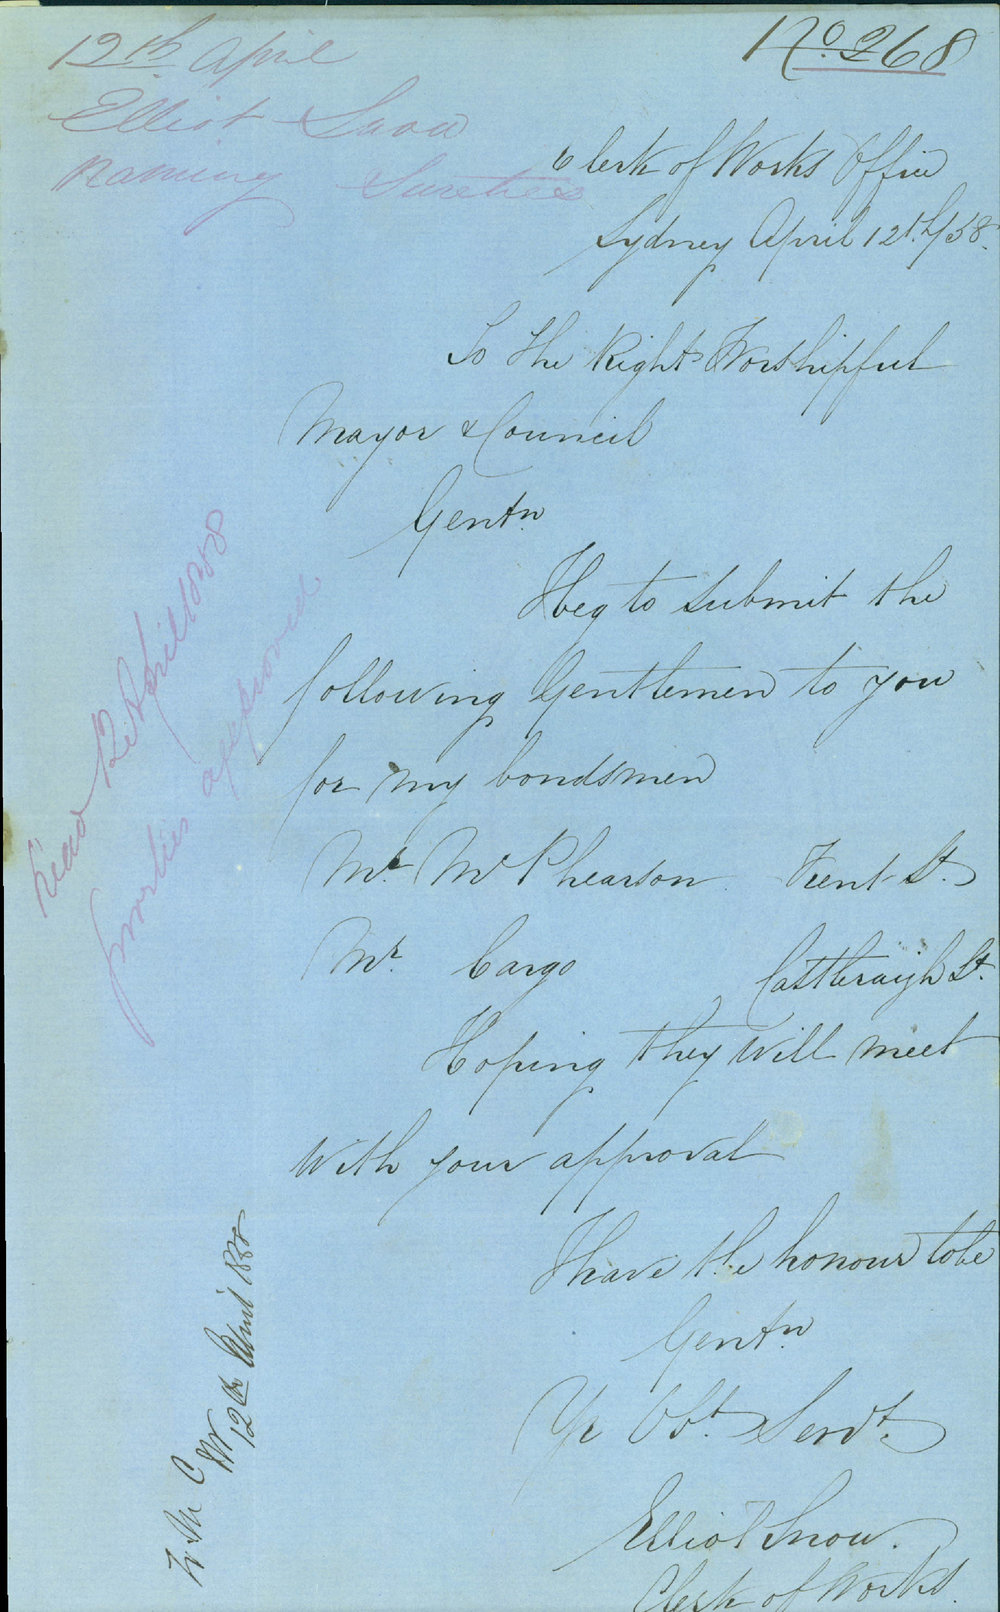 No. 268
12th April
Elliot Snow
Naming Sureties
Clerk of Works Office
Sydney April 12th/58.
To The Right Worshipful
Mayor & Council
Gentn
I beg to submit the
following Gentlemen to you
for my bondsmen
Mr. McPhearson Kent St.
Mr. Cargo Castleraigh St.
Hoping they will meet
with your approval
I have the honour to be
Gentn
Yr Obt. Servt.
Elliot Snow.
Clerk of Works.
Read 12th April 1858
sureties approved
12th April 1858